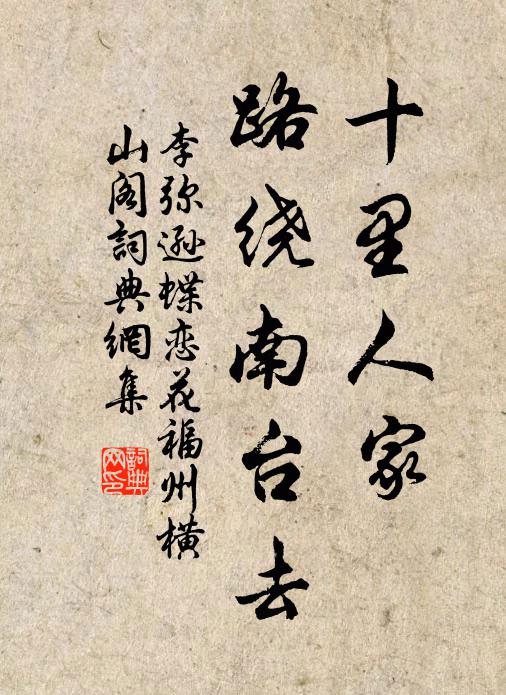 十里人家
路绕南台去
李弥逊蝶恋花福州横
山阁詞典網集
詞典
网印